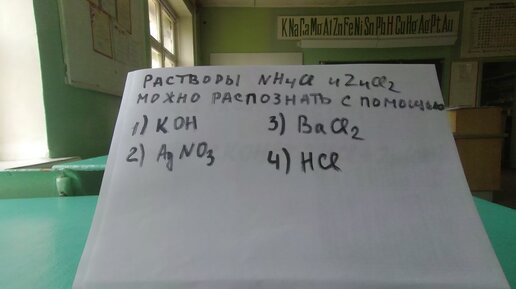 K Na Ca Mg Al Zn Fe Ni Sn Pb H Cu Hg Ag Pt Au
РАСТВОРЫ NH4Cl и ZnCl2
МОЖНО РАСПОЗНАТЬ С ПОМОЩЬЮ
1) KOH 3) BaCl2
2) AgNO3 4) HCl